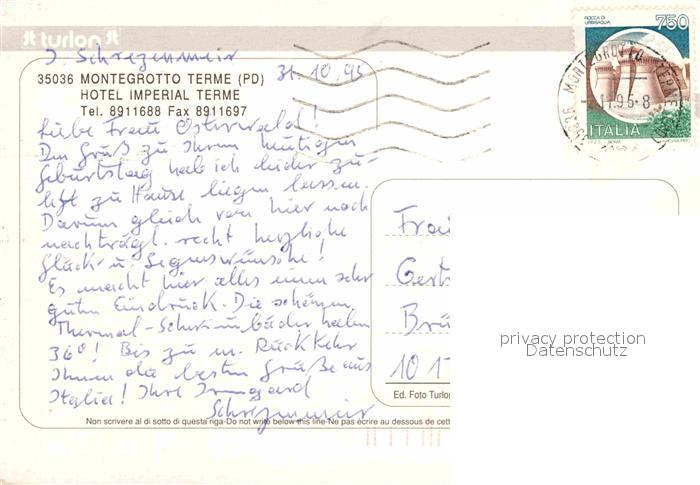 turlon
ROCCA DI URBISAGLIA
750
ITALIA
J. Schrezenmeir
31.10.95
35036 MONTEGROTTO TERME (PD)
HOTEL IMPERIAL TERME
Tel. 8911688 Fax 8911697
Liebe Frau Osterwald!
Den Gruß zu Ihrem heutigen
Geburtstag hab ich leider zu-
letzt zu Hause liegen lassen.
Darum gleich von hier noch
nachträgl. recht herzliche
Glück- u. Segenswünsche!
Es macht hier alles einen sehr
guten Eindruck. Die schönen
Thermal-Schwimmbäder haben
36°! Bis zu m. Rückkehr
Ihnen die besten Grüße aus
Italia! Ihre Irmgard
Schrezenmeir
Frau
Gert
Brü
101
privacy protection
Datenschutz
Ed. Foto Turlon
Non scrivere al di sotto di questa riga-Do not write below this line-Ne pas écrire au dessous de cett